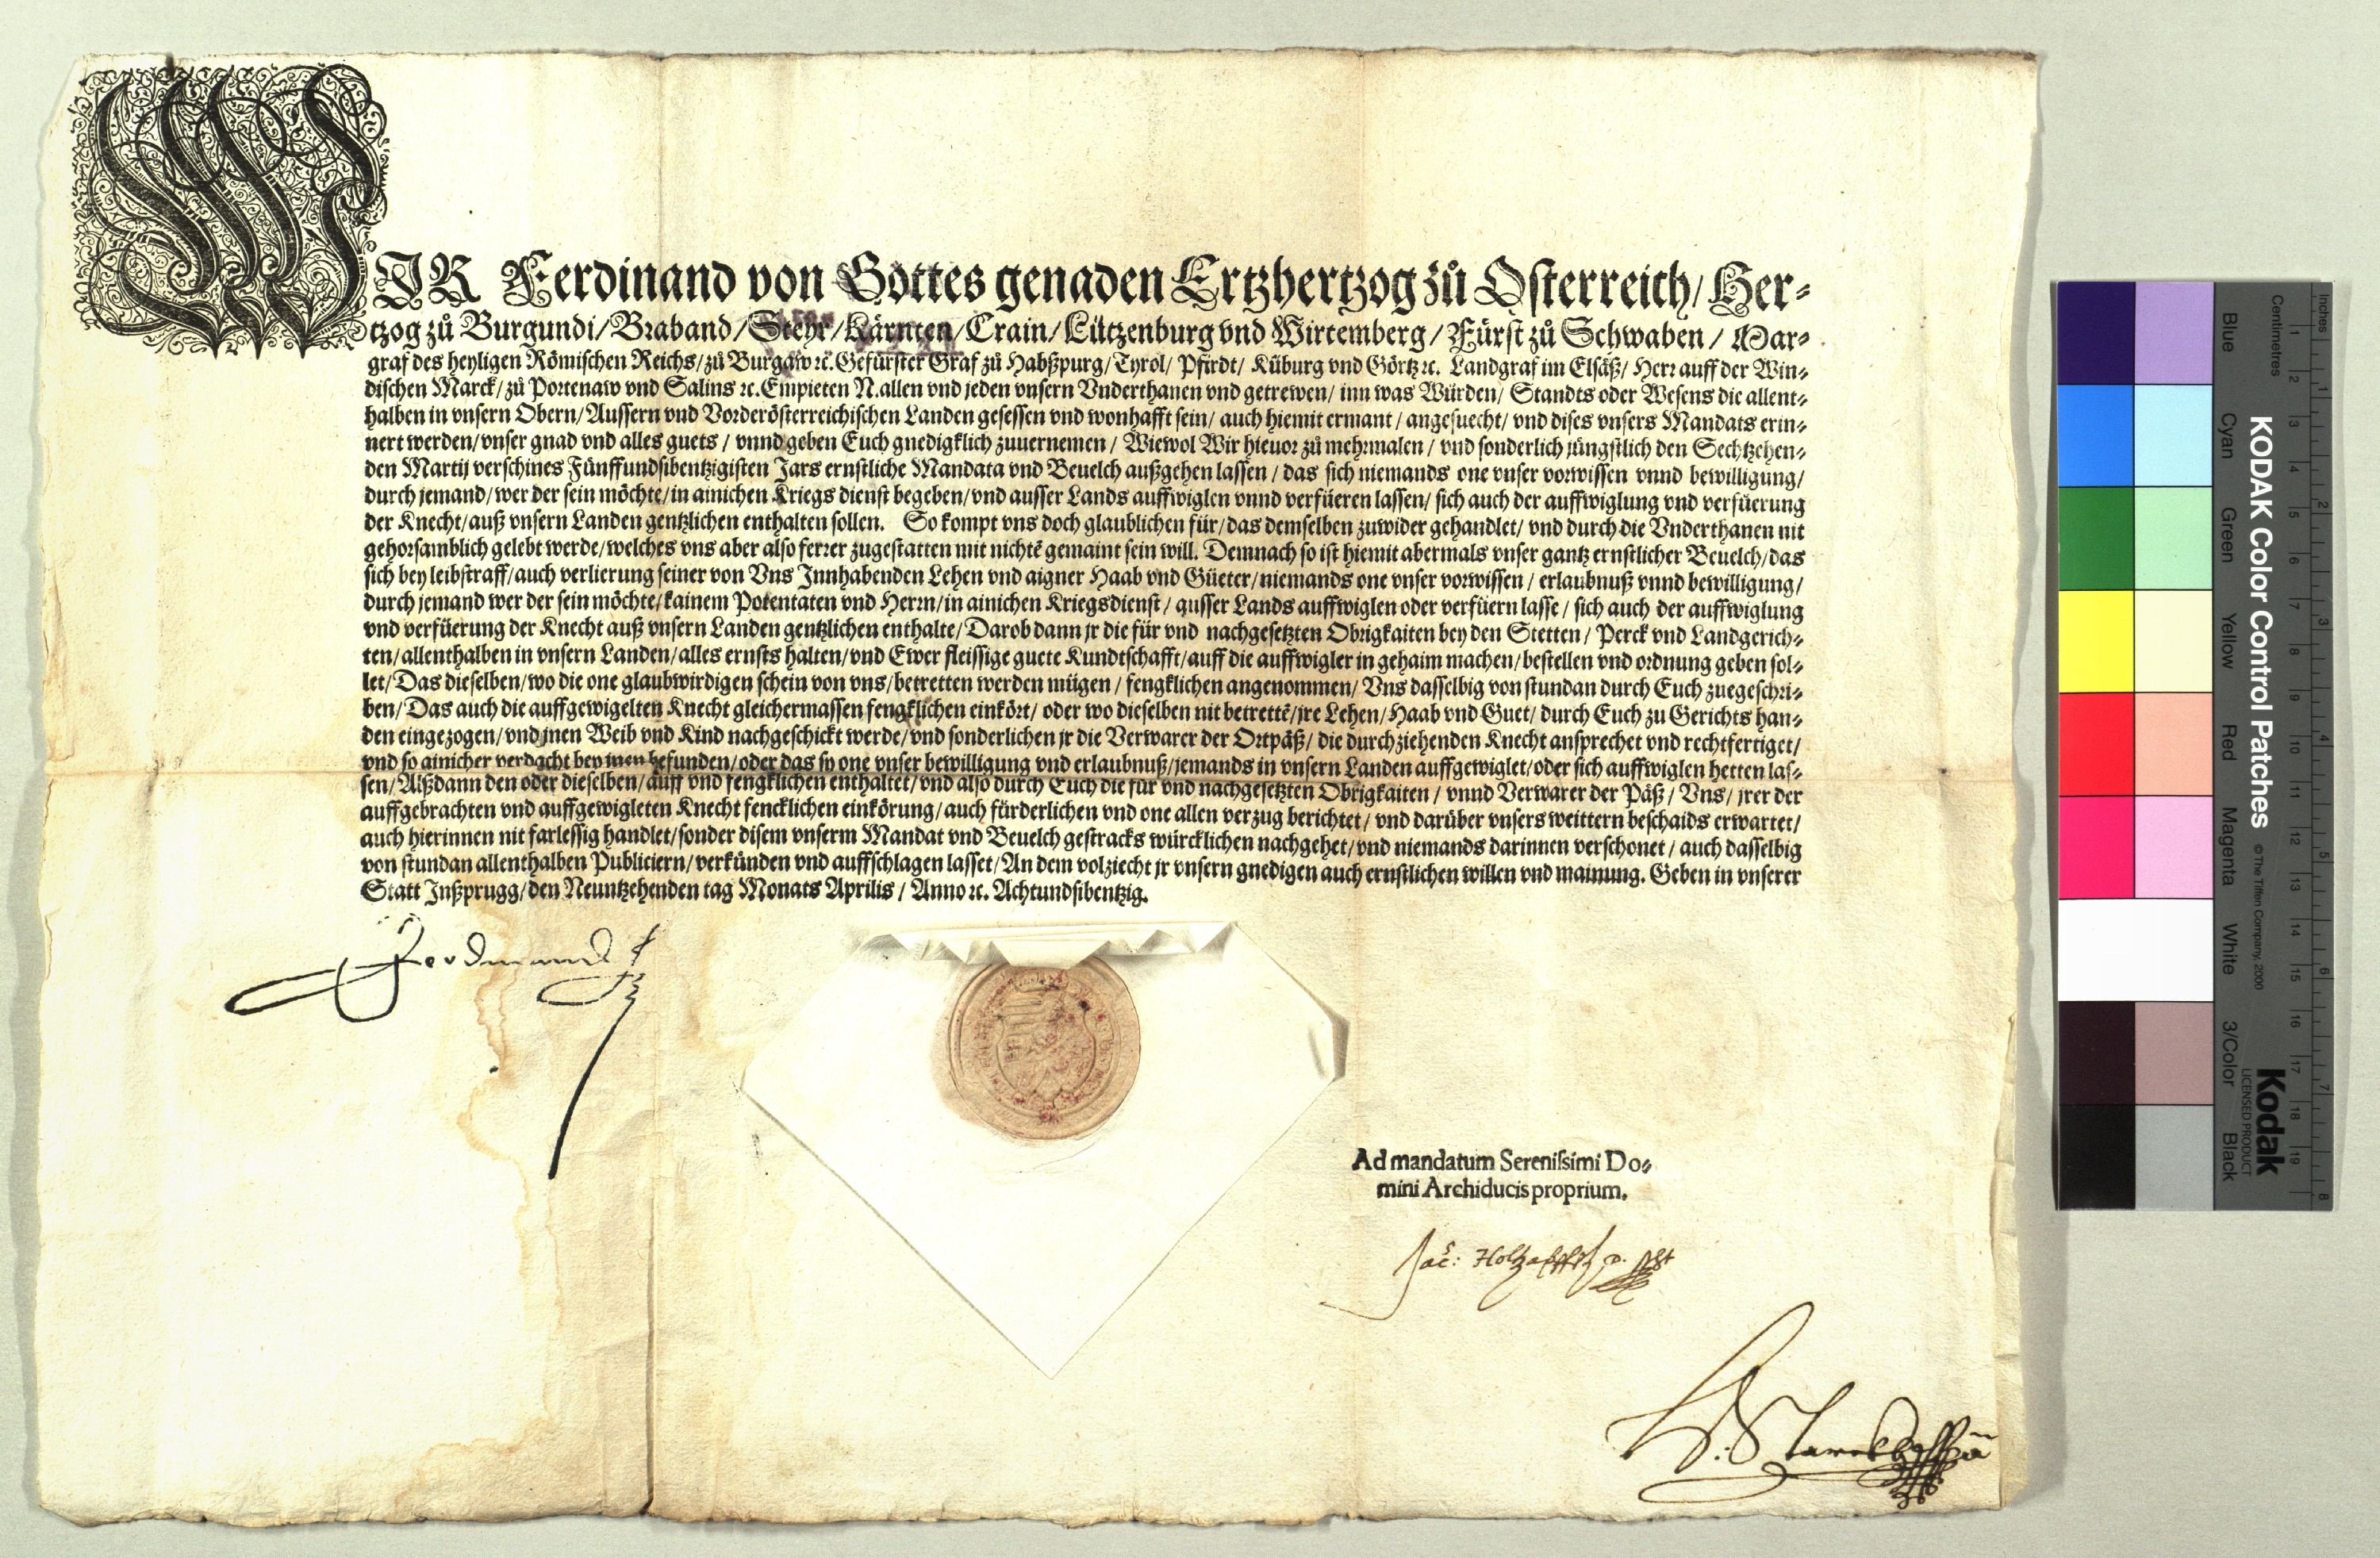 WIR Ferdinand von Gottes genaden Ertzhertzog zů Osterreich/ Her-
tzog zů Burgundi/ Braband/ Steyr/ Kärnten/ Crain/ Lützenburg vnd Wirtemberg/ Fürst zů Schwaben/ Mar-
graf des heyligen Römischen Reichs/ zů Burgaw ꝛc. Gefürster Graf zů Habßpurg/ Tyrol/ Pfirdt/ Küburg vnd Görtz ꝛc. Landgraf im Elsäß/ Herr auff der Win-
dischen Marck/ zů Portenaw vnd Salins ꝛc. Empieten N. allen vnd jeden vnsern Vnderthanen vnd getrewen/ inn was Würden/ Standts oder Wesens die allent-
halben in vnsern Obern/ Aussern vnd Vorderösterreichischen Landen gesessen vnd wonhafft sein/ auch hiemit ermant/ angesuecht/ vnd dises vnsers Mandats erin-
nert werden/ vnser gnad vnd alles guets/ vnnd geben Euch gnedigklich zuuernemen/ Wiewol Wir hieuor zů mehrmalen/ vnd sonderlich jüngstlich den Sechtzehen-
den Martij verschines Fünffundsibentzigisten Jars ernstliche Mandata vnd Beuelch außgehen lassen/ das sich niemands one vnser vorwissen vnnd bewilligung/
durch jemand/ wer der sein möchte/ in ainichen Kriegs dienst begeben/ vnd ausser Lands auffwiglen vnnd verfüeren lassen/ sich auch der auffwiglung vnd verfüerung
der Knecht/ auß vnsern Landen gentzlichen enthalten sollen. So kompt vns doch glaublichen für/ das demselben zuwider gehandlet/ vnd durch die Vnderthanen nit
gehorsamblich gelebt werde/ welches vns aber also ferrer zugestatten mit nichtē gemaint sein will. Demnach so ist hiemit abermals vnser gantz ernstlicher Beuelch/ das
sich bey leibstraff/ auch verlierung seiner von Vns Innhabenden Lehen vnd aigner Haab vnd Güeter/ niemands one vnser vorwissen/ erlaubnuß vnnd bewilligung/
durch jemand wer der sein möchte/ kainem Potentaten vnd Herrn/ in ainichen Kriegsdienst/ ausser Lands auffwiglen oder verfüern lasse/ sich auch der auffwiglung
vnd verfüerung der Knecht auß vnsern Landen gentzlichen enthalte/ Darob dann jr die für vnd nachgesetzten Obrigkaiten bey den Stetten/ Perck vnd Landgerich-
ten/ allenthalben in vnsern Landen/ alles ernsts halten/ vnd Ewer fleissige guete Kundtschafft/ auff die auffwigler in gehaim machen/ bestellen vnd ordnung geben sol-
let/ Das dieselben/ wo die one glaubwirdigen schein von vns/ betretten werden mügen/ fengklichen angenommen/ Vns dasselbig von stundan durch Euch zuegeschri-
ben/ Das auch die auffgewigelten Knecht gleichermassen fengklichen einkört/ oder wo dieselben nit betrettē/ jre Lehen/ Haab vnd Guet/ durch Euch zu Gerichts han-
den eingezogen/ vnd jnen Weib vnd Kind nachgeschickt werde/ vnd sonderlichen jr die Verwarer der Ortpäß/ die durchziehenden Knecht ansprechet vnd rechtfertiget/
vnd so ainicher verdacht bey inen befunden/ oder das sy one vnser bewilligung vnd erlaubnuß/ jemands in vnsern Landen auffgewiglet/ oder sich auffwiglen hetten las-
sen/ Alßdann den oder dieselben/ auff vnd fengklichen enthaltet/ vnd also durch Euch die für vnd nachgesetzten Obrigkaiten/ vnnd Verwarer der Päß/ Vns/ jrer der
auffgebrachten vnd auffgewigleten Knecht fencklichen einkörung/ auch fürderlichen vnd one allen verzug berichtet/ vnd darüber vnsers weittern beschaids erwartet/
auch hierinnen nit farlessig handlet/ sonder disem vnserm Mandat vnd Beuelch gestracks würcklichen nachgehet/ vnd niemands darinnen verschonet/ auch dasselbig
von stundan allenthalben Publiciern/ verkünden vnd auffschlagen lasset/ An dem volziecht jr vnsern gnedigen auch ernstlichen willen vnd mainung. Geben in vnserer
Statt Inßprugg/ den Neuntzehenden tag Monats Aprilis/ Anno ꝛc. Achtundsibentzig.
Ferdinand
Ad mandatum Serenissimi Do-
mini Archiducis proprium.
Jac: Holtzapffl
KODAK Color Control Patches
© The Tiffen Company, 2000
Kodak
LICENSED PRODUCT
Blue
Cyan
Green
Yellow
Red
Magenta
White
3/Color
Black
Inches
Centimetres
1 2 3 4 5 6 7 8 9 10 11 12 13 14 15 16 17 18 19
1 2 3 4 5 6 7 8